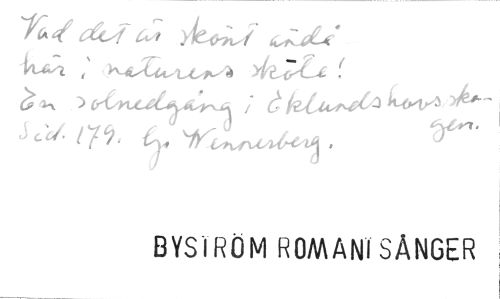 Vad det är skönt ändå
här i naturens sköte!
En solnedgång i Eklundshovsska-
gen.
Sid. 179. G. Wennerberg.
BYSTRÖM ROMANI SÅNGER